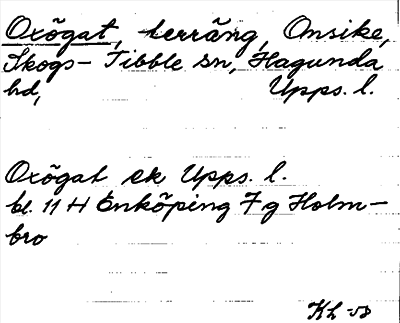 Oxögat, terräng, Onsike,
Skogs-Tibble sn, Hagunda
hd, Upps. l.
Oxögat ek Upps. l.
bl. 11 H Enköping 7 g Holm-
bro